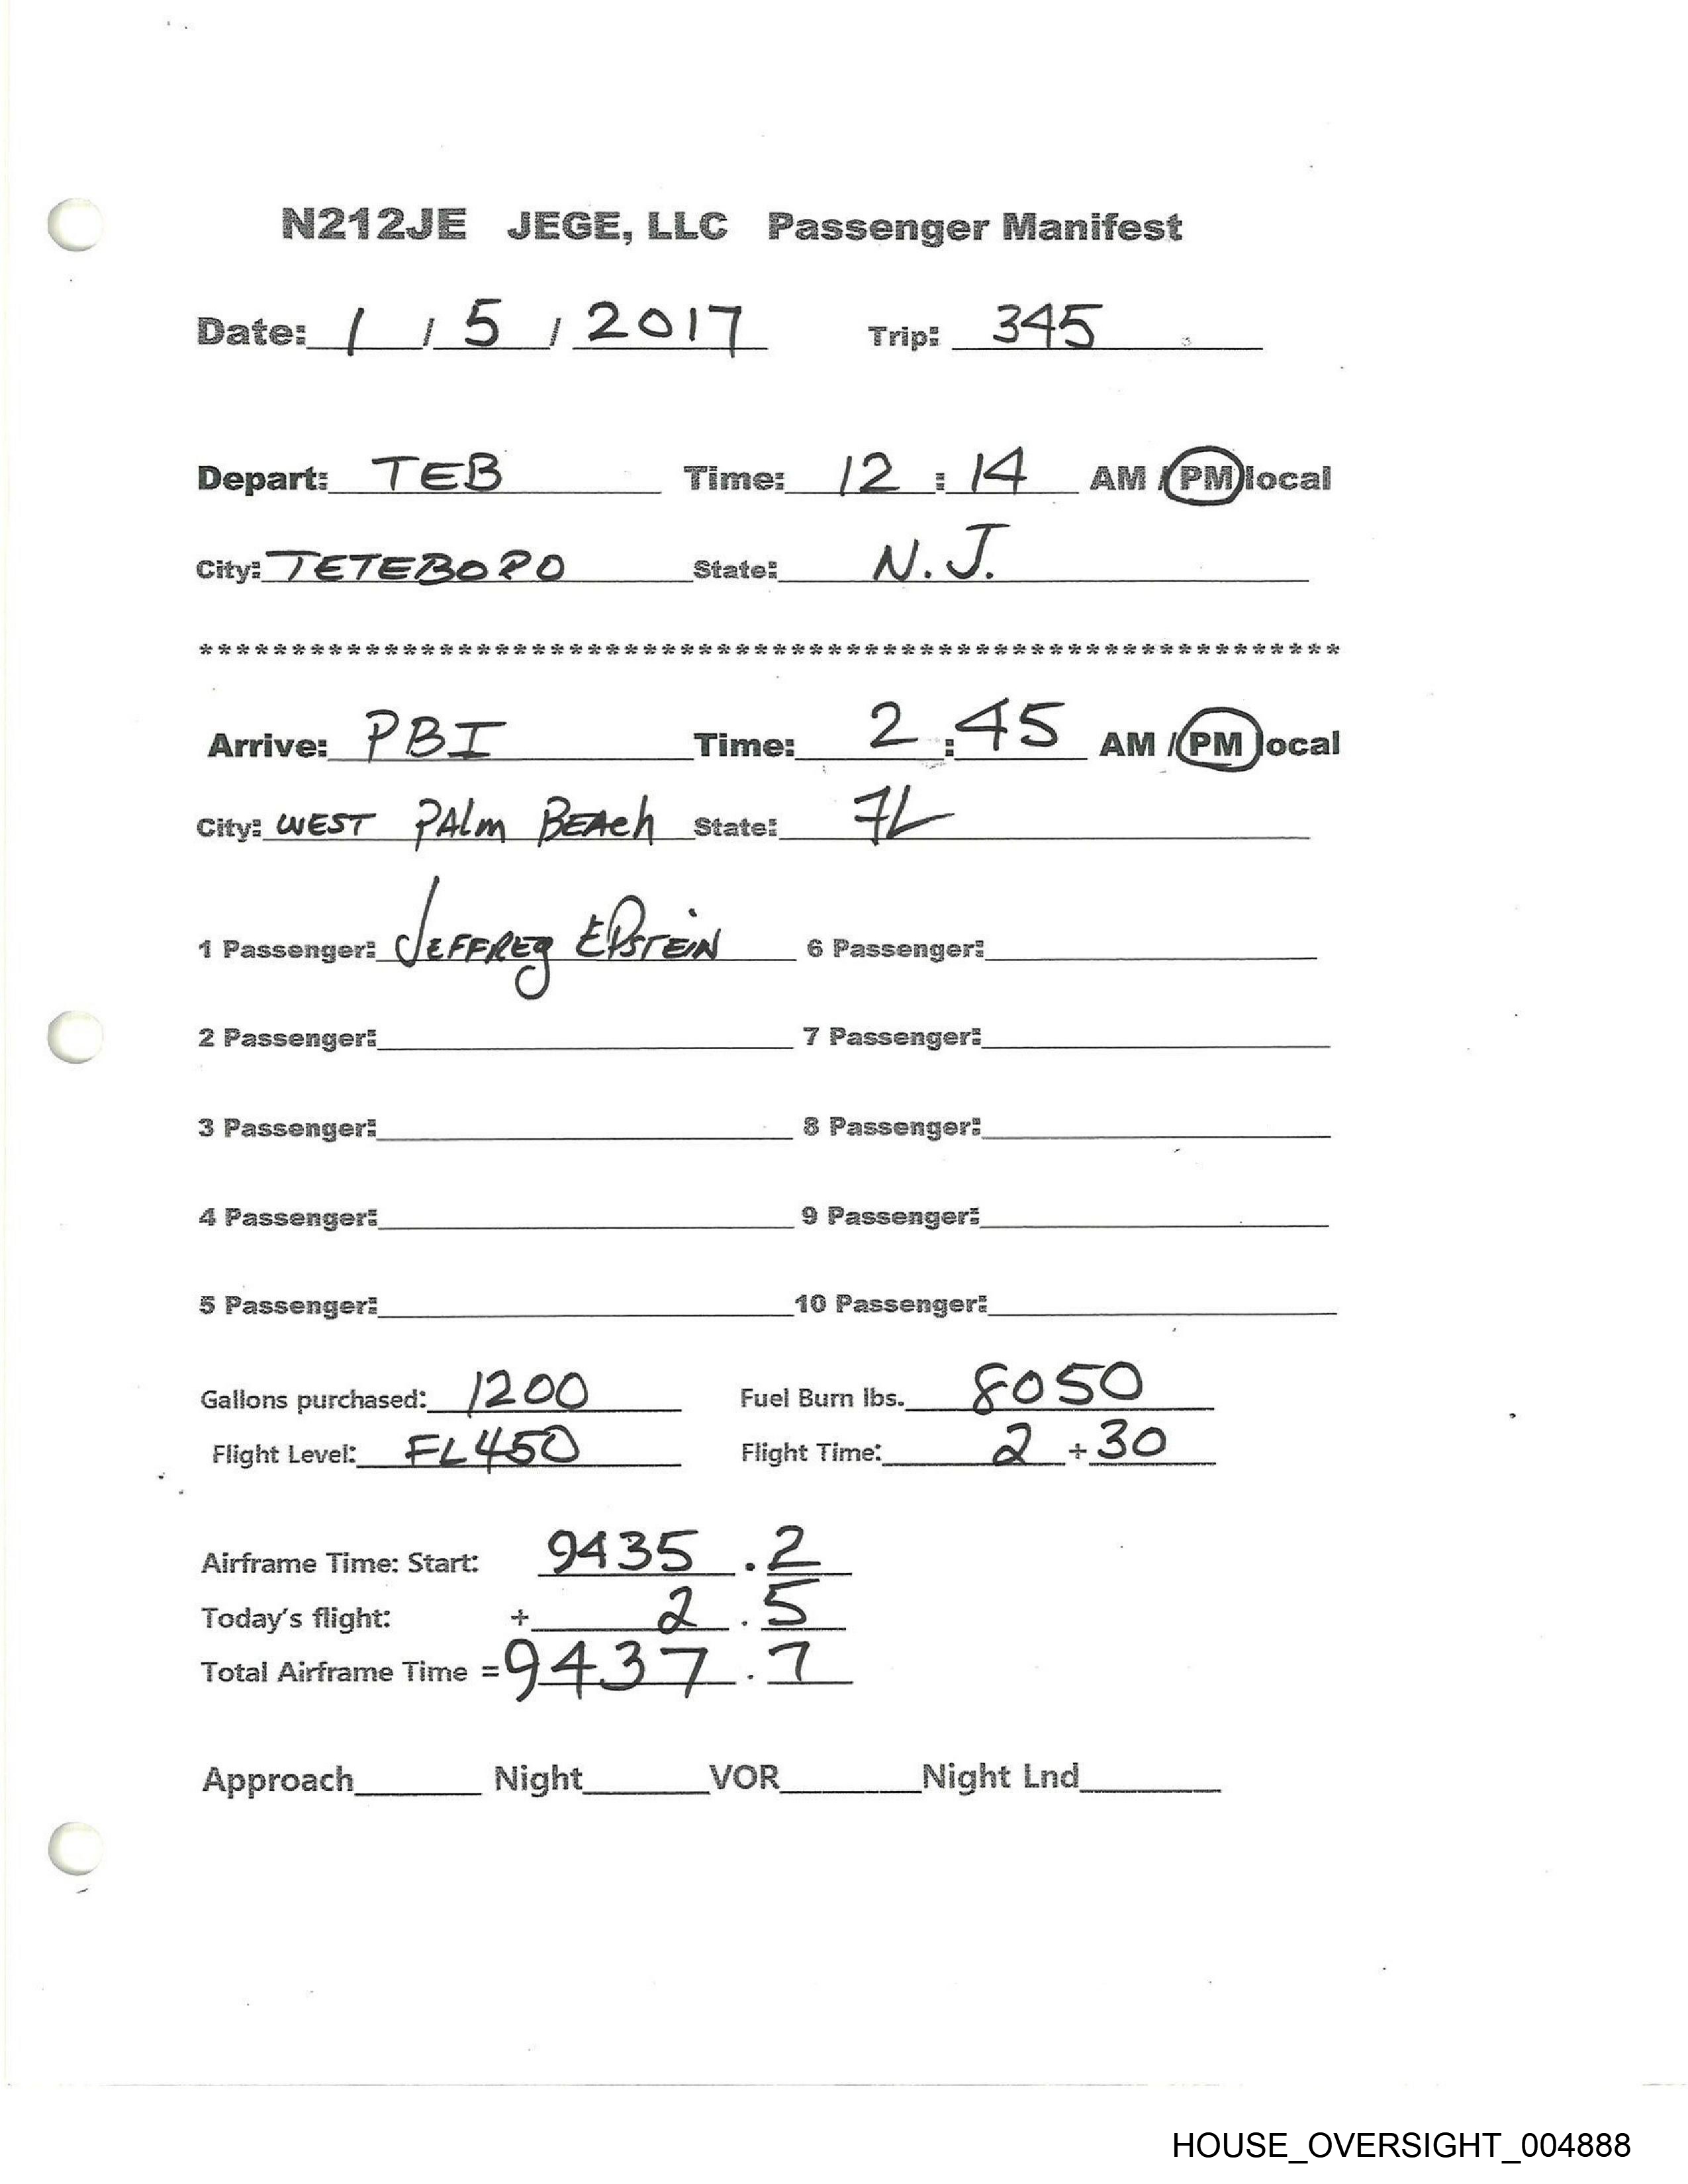 N212JE JEGE, LLC Passenger Manifest
Date: 1 / 5 / 2017 Trip: 345
Depart: TEB Time: 12 : 14 AM / PM local
City: TETEBORO State: N.J.
**************************************************************
Arrive: PBI Time: 2 : 45 AM / PM local
City: WEST PALm BEAch State: FL
1 Passenger: JEFFREy EPSTEIN 6 Passenger:
2 Passenger: 7 Passenger:
3 Passenger: 8 Passenger:
4 Passenger: 9 Passenger:
5 Passenger: 10 Passenger:
Gallons purchased: 1200 Fuel Burn lbs. 8050
Flight Level: FL450 Flight Time: 2 + 30
Airframe Time: Start: 9435 . 2
Today's flight: + 2 . 5
Total Airframe Time = 9437 . 7
Approach Night VOR Night Lnd
HOUSE_OVERSIGHT_004888